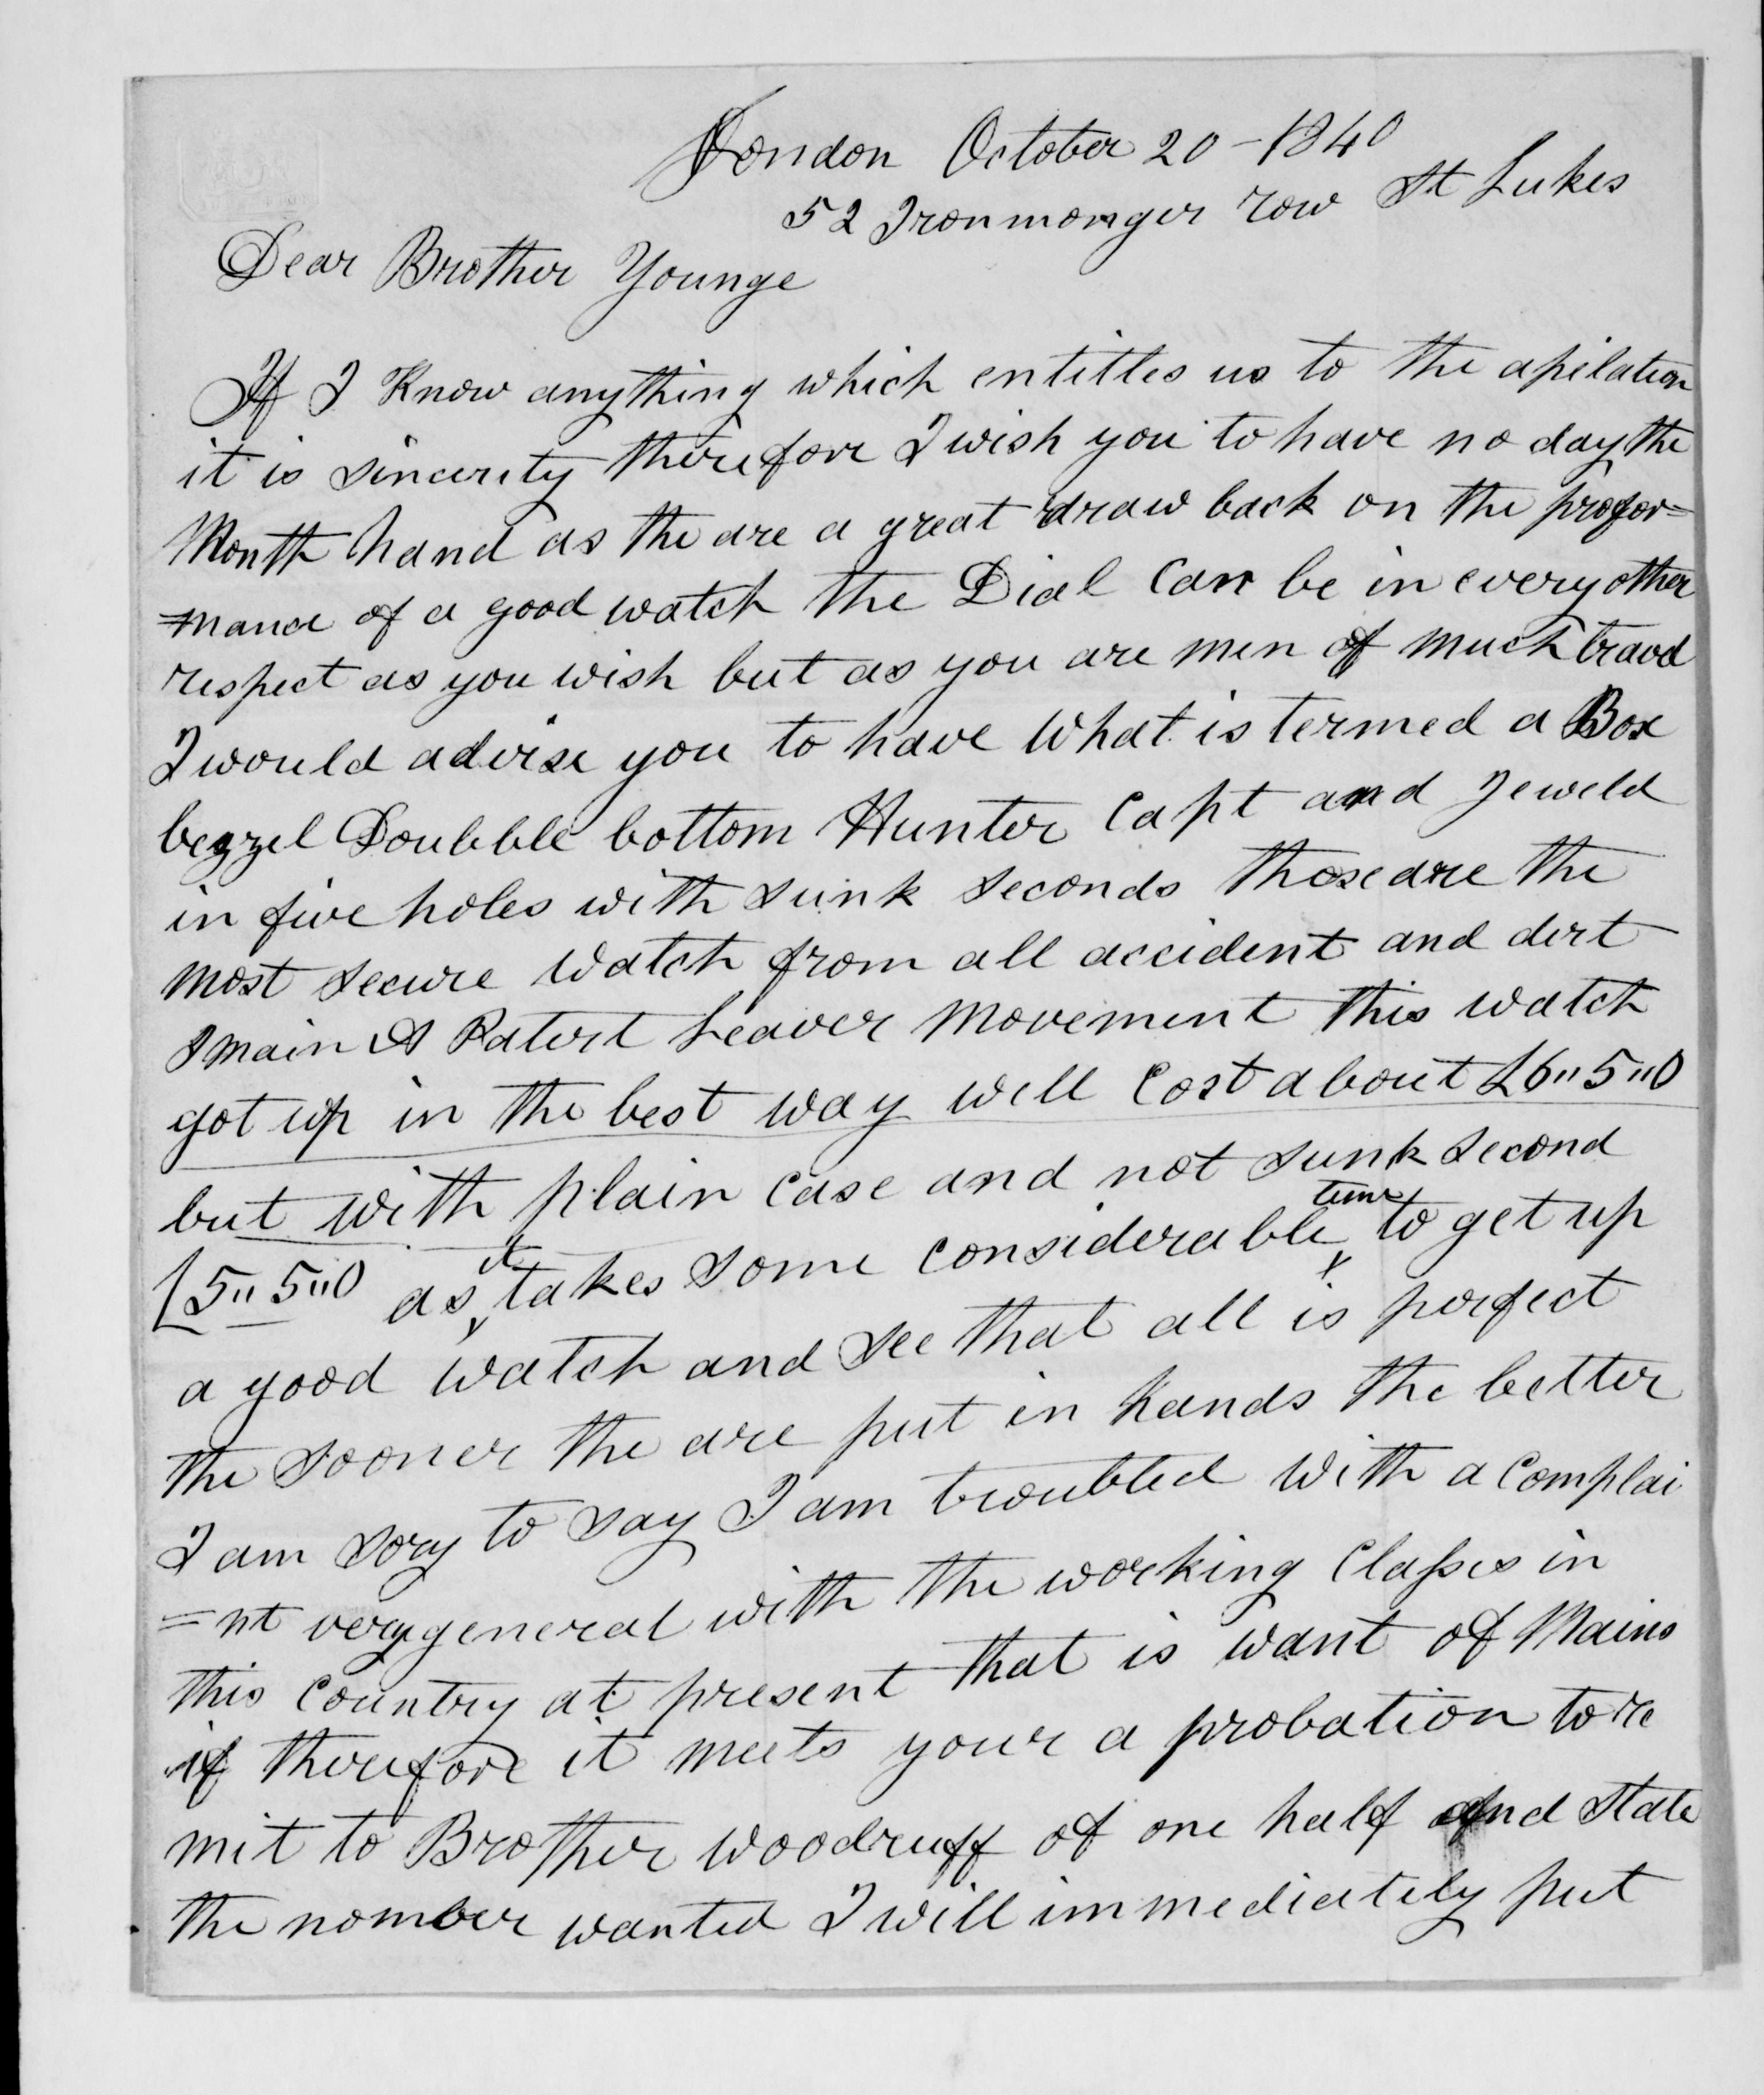 London October 20 - 1840
52 Ironmonger row St Lukes
Dear Brother Younge
If I Know anything which entitles us to the apilation
it is sincerity therefore I wish you to have no day the
Month hand as the are a great draw back on the profor=
=mance of a good watch the Dial Can be in every other
respect as you wish but as you are men of much travel
I would advise you to have what is termed a Box
bezzel Doubble bottom Hunter Capt and Jeweld
in five holes with sunk seconds those are the
most secure watch from all accident and dirt
I main A Patert Leaver Movement this watch
got up in the best way will Cost about £6"5"0
but with plain Case and not sunk second
£5"5"0 as it takes some considerable time to get up
a good watch and see that all is perfect
the sooner the are put in hands the better
I am sory to say I am troubled with a Complai
=nt very general with the working Classes in
this Country at present that is want of Mains
if therefore it meets your a probation to re
mit to Brother Woodruff of one half and State
the nomber wanted I will immediately put